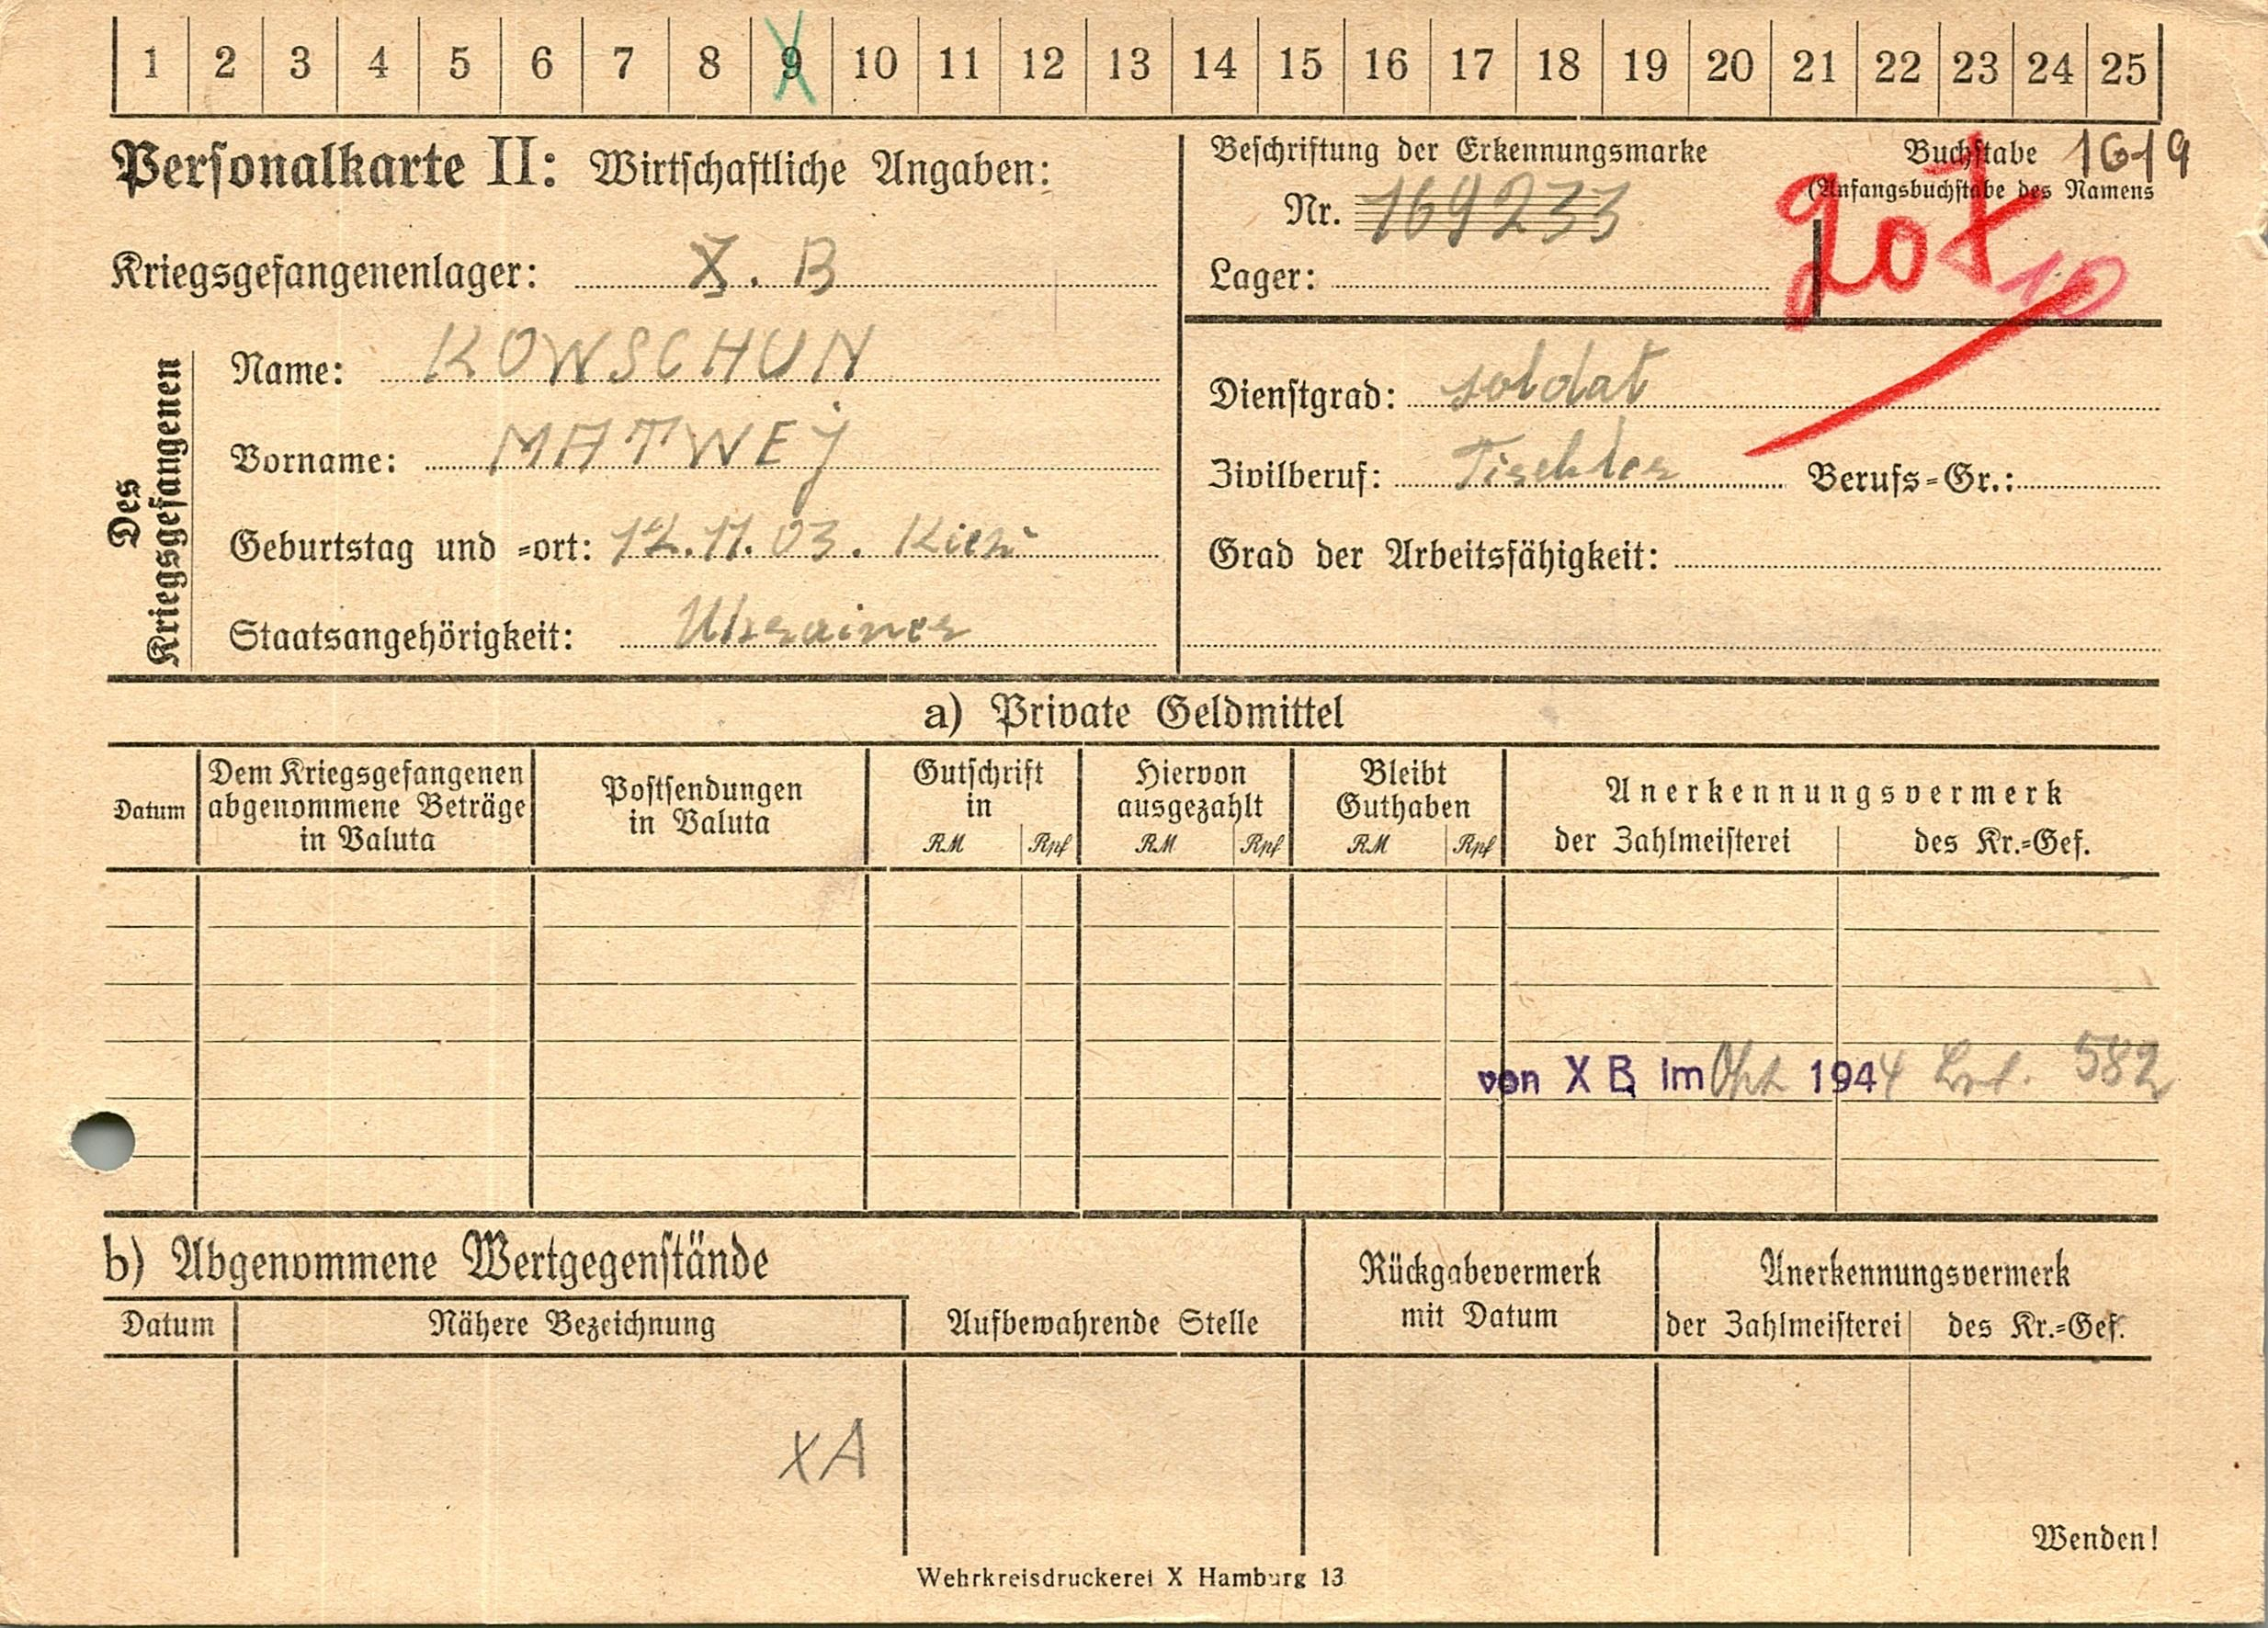 1 2 3 4 5 6 7 8 9 10 11 12 13 14 15 16 17 18 19 20 21 22 23 24 25
Personalkarte II: Wirtschaftliche Angaben:
Kriegsgefangenenlager: X. B
Des Kriegsgefangenen
Name: KOWSCHUN
Vorname: MATWEj
Geburtstag und =ort: 12.11.03. Kiew
Staatsangehörigkeit: Ukrainer
Beschriftung der Erkennungsmarke
Nr. 169233
Lager:
Buchstabe 1619
(Anfangsbuchstabe des Namens
10
Dienstgrad: soldat
Zivilberuf: Tischler Berufs=Gr.:
Grad der Arbeitsfähigkeit:
a) Private Geldmittel
Datum
Dem Kriegsgefangenen
abgenommene Beträge
in Valuta
Postsendungen
in Valuta
Gutschrift
in
RM Rpf
Hiervon
ausgezahlt
RM Rpf
Bleibt
Guthaben
RM Rpf
Anerkennungsvermerk
der Zahlmeisterei des Kr.=Gef.
von X B im Okt 1944 582
b) Abgenommene Wertgegenstände
Datum Nähere Bezeichnung Aufbewahrende Stelle
Rückgabevermerk
mit Datum
Anerkennungsvermerk
der Zahlmeisterei des Kr.=Gef.
XA
Wenden!
Wehrkreisdruckerei X Hamburg 13